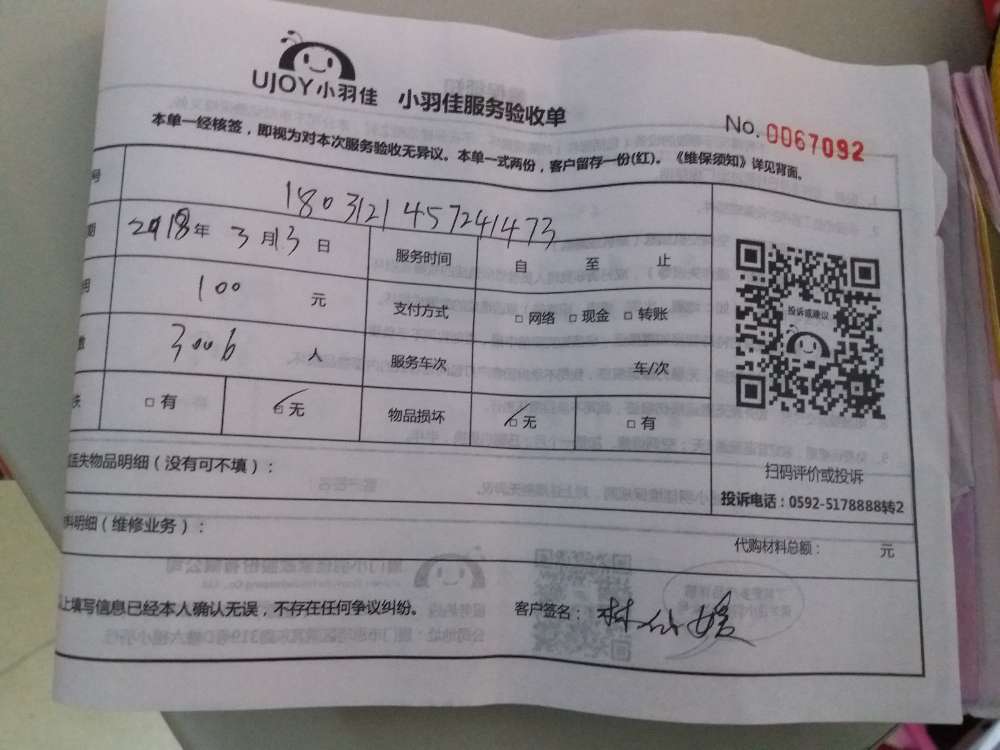 UJOY小羽佳 小羽佳服务验收单
No. 0067092
本单一经核签，即视为对本次服务验收无异议。本单一式两份，客户留存一份(红)。《维保须知》详见背面。
号 1803121457241473
期 2018年 3月13日 服务时间 自 至 止
用 100 元 支付方式 □网络 □现金 □转账
数 3006 人 服务车次 车/次
失 □有 ☑无 物品损坏 ☑无 □有
投诉或建议
扫码评价或投诉
投诉电话：0592-5178888转2
丢失物品明细（没有可不填）：
料明细（维修业务）：
代购材料总额： 元
以上填写信息已经本人确认无误，不存在任何争议纠纷。
客户签名： 林仙